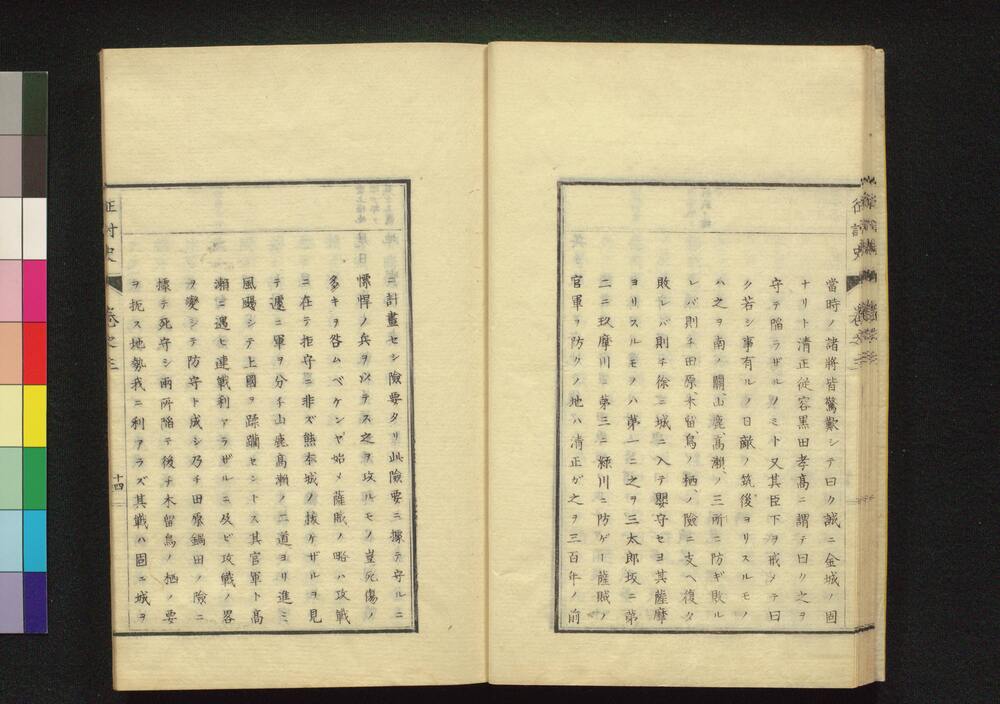 當時ノ諸將皆驚歎シテ曰ク誠ニ金城ノ固
ナリト清正從容黒田孝髙ニ謂テ曰ク之ヲ
守テ陥ラザルノミト又其臣下ヲ戒メテ曰
ク若シ事有ルノ日敵ノ筑後ヨリスルモノ
ハ之ヲ南ノ關、山鹿、髙瀬、ノ三所ニ防ギ敗ル
レバ則チ田原、木留、鳥ノ栖、ノ險ニ支ヘ復タ
敗レバ則チ徐ニ城ニ入テ嬰守セヨ其薩摩
ヨリスルモノハ第一ニ之ヲ三太郎坂ニ第
二ニ玖摩川ニ第三ニ緑川ニ防ゲー薩賊ノ
官軍ヲ防クノ地ハ清正ガ之ヲ三百年ノ前
ニ計畫セシ險要タリ此險要ニ據テ守ルニ
慓悍ノ兵ヲ以テス之ヲ攻ルモノ豈死傷ノ
多キヲ咎ムベケンヤ始メ薩賊ノ略ハ攻戰
ニ在テ拒守ニ非ズ熊本城ノ拔ケザルヲ見
テ遽ニ軍ヲ分チ山鹿髙瀬ノ二道ヨリ進ミ
風颺シテ上國ヲ蹂躙セントス其官軍ト髙
瀬ニ遇ヒ連戰利アラザルニ及ビ攻戰ノ畧
ヲ變シテ防守ト成シ乃チ田原鍋田ノ險ニ
據テ死守シ兩所陥テ後チ木留鳥ノ栖ノ要
ヲ扼ス地勢我ニ利アラズ其戰ハ固ニ城ヲ
征討史
卷之三
十四